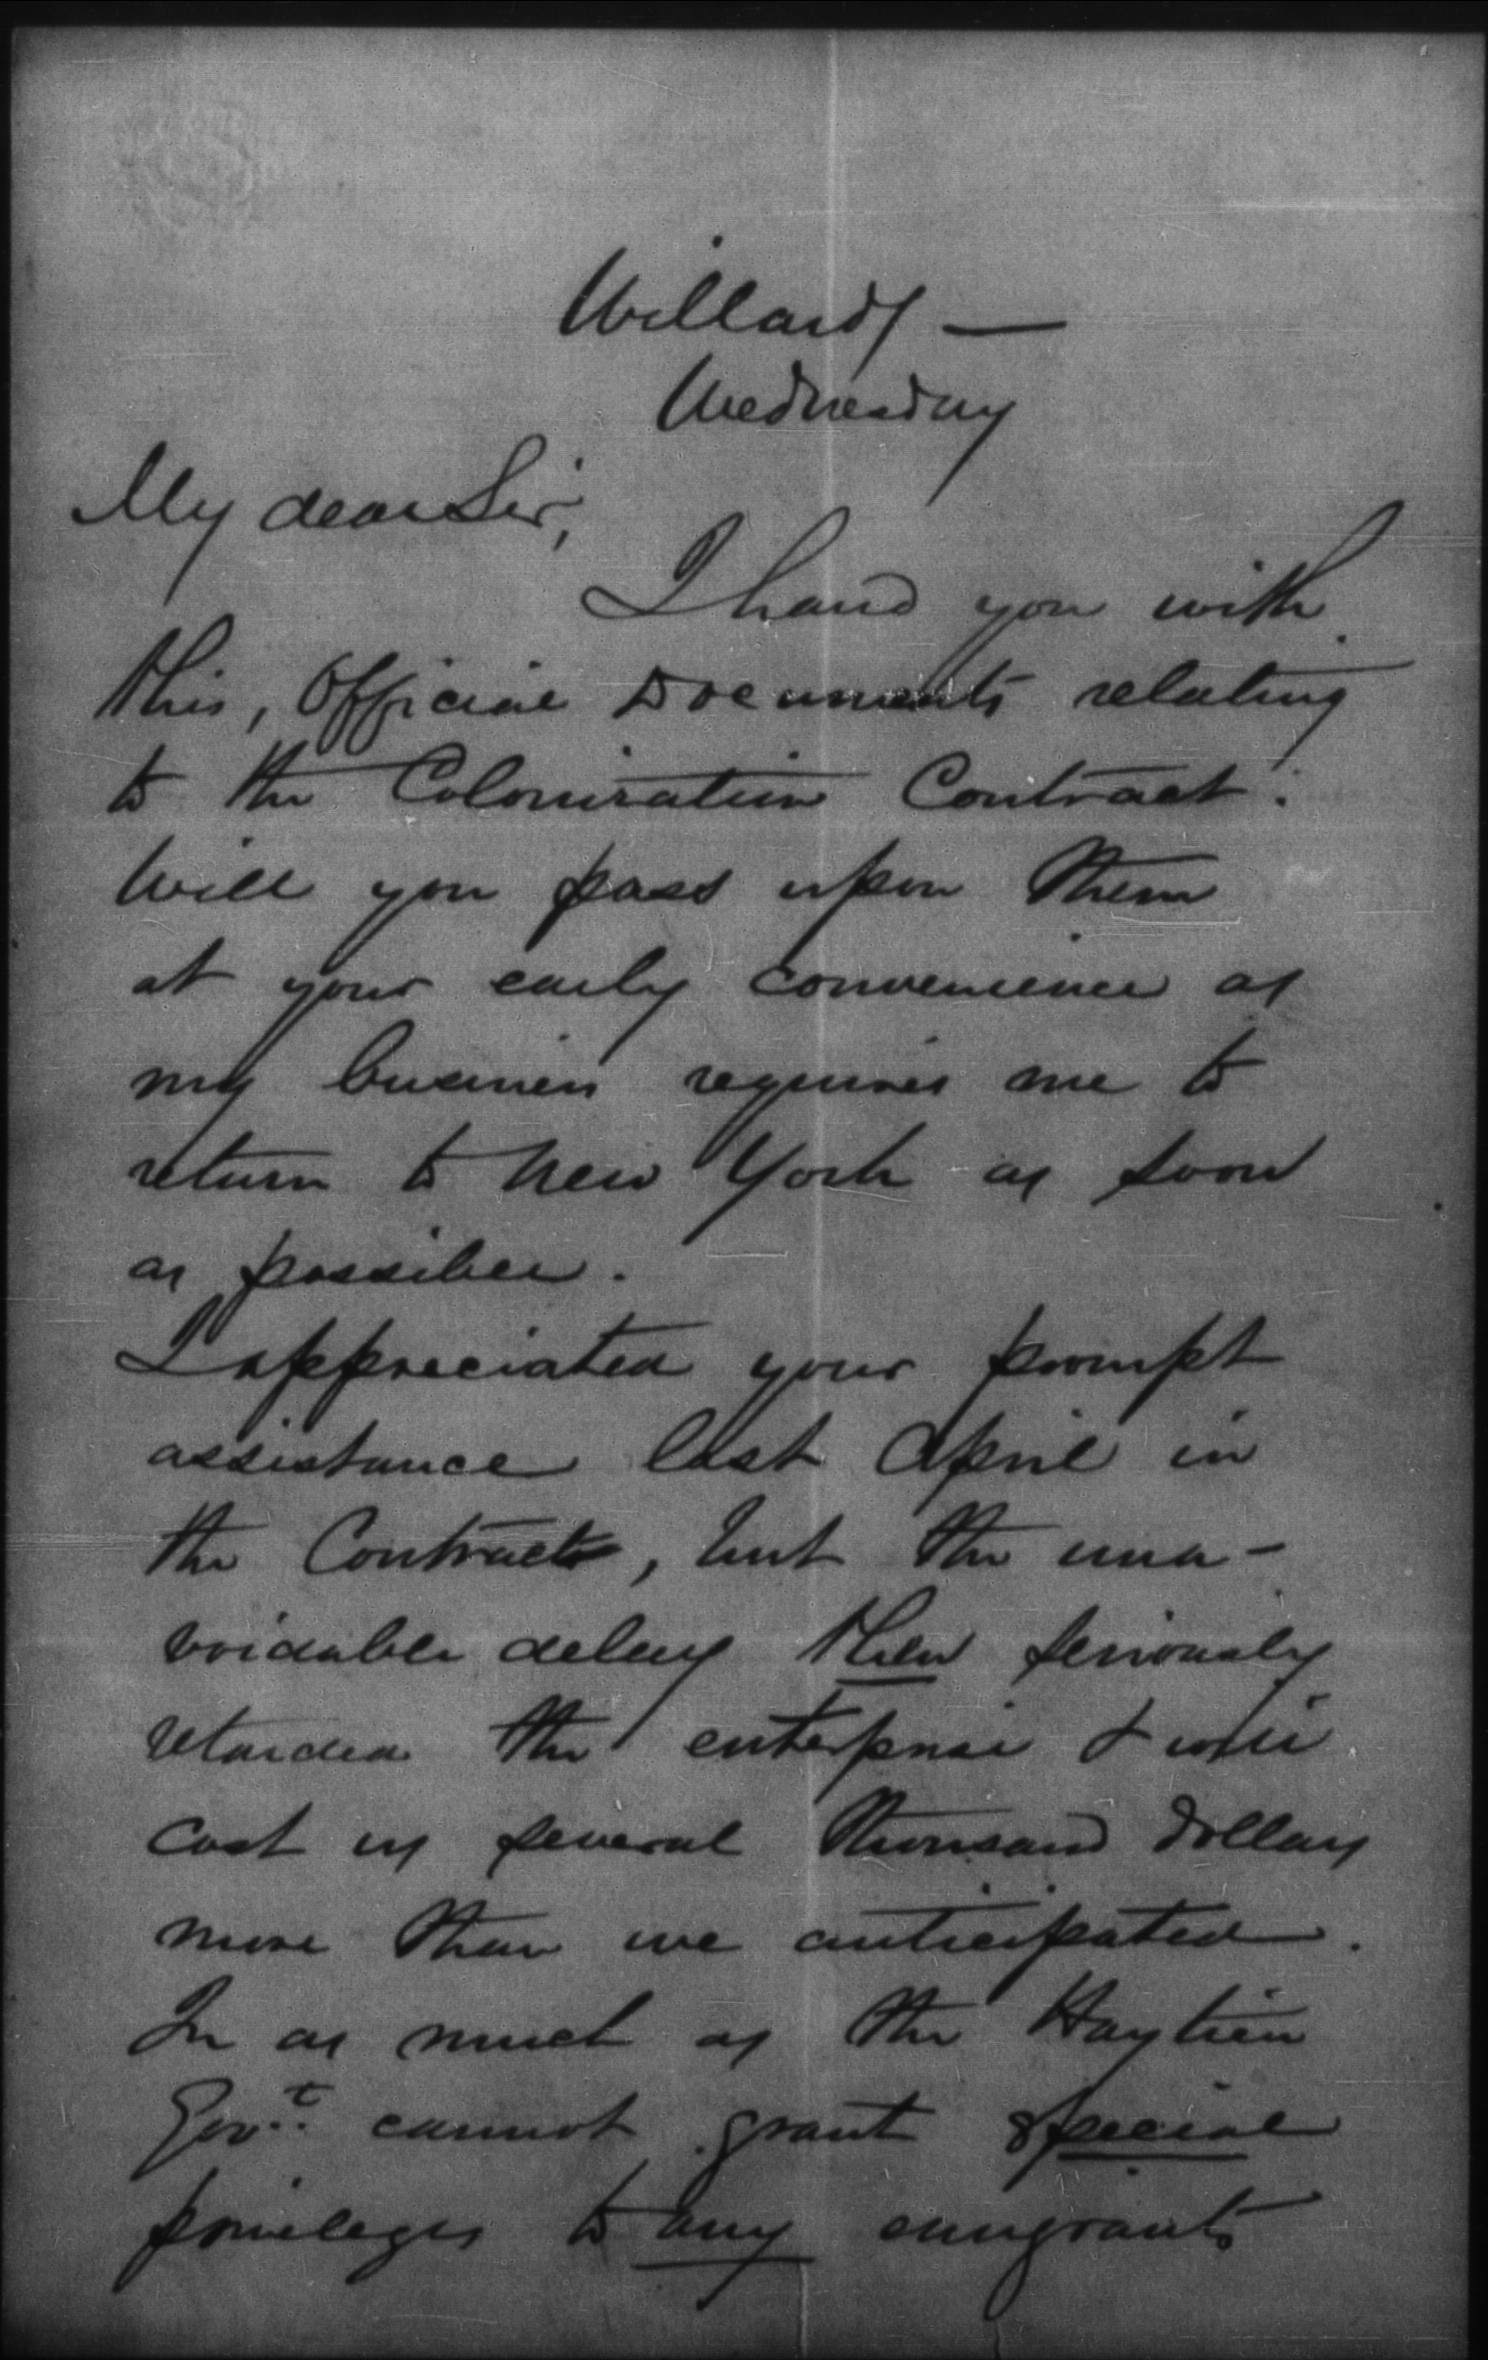 Willards —
Wednesday
My dear Sir,
I hand you with
this, Official Documents relating
to the Colonization Contract.
Will you pass upon them
at your early convenience as
my business requires me to
return to New York as soon
as possible.
I appreciated your prompt
assistance last April in
the Contracts, but the una-
voidable delay then seriously
retarded the enterprise & will
cost us several thousand dollars
more than we anticipated.
In as much as the Haytien
Govt. cannot grant special
privileges to any emigrants